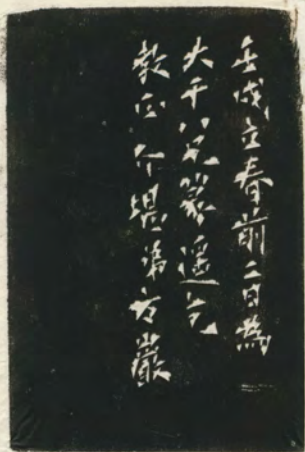 壬戌立春前二日為
大千八兄篆遥乞
教正介堪弟方巖